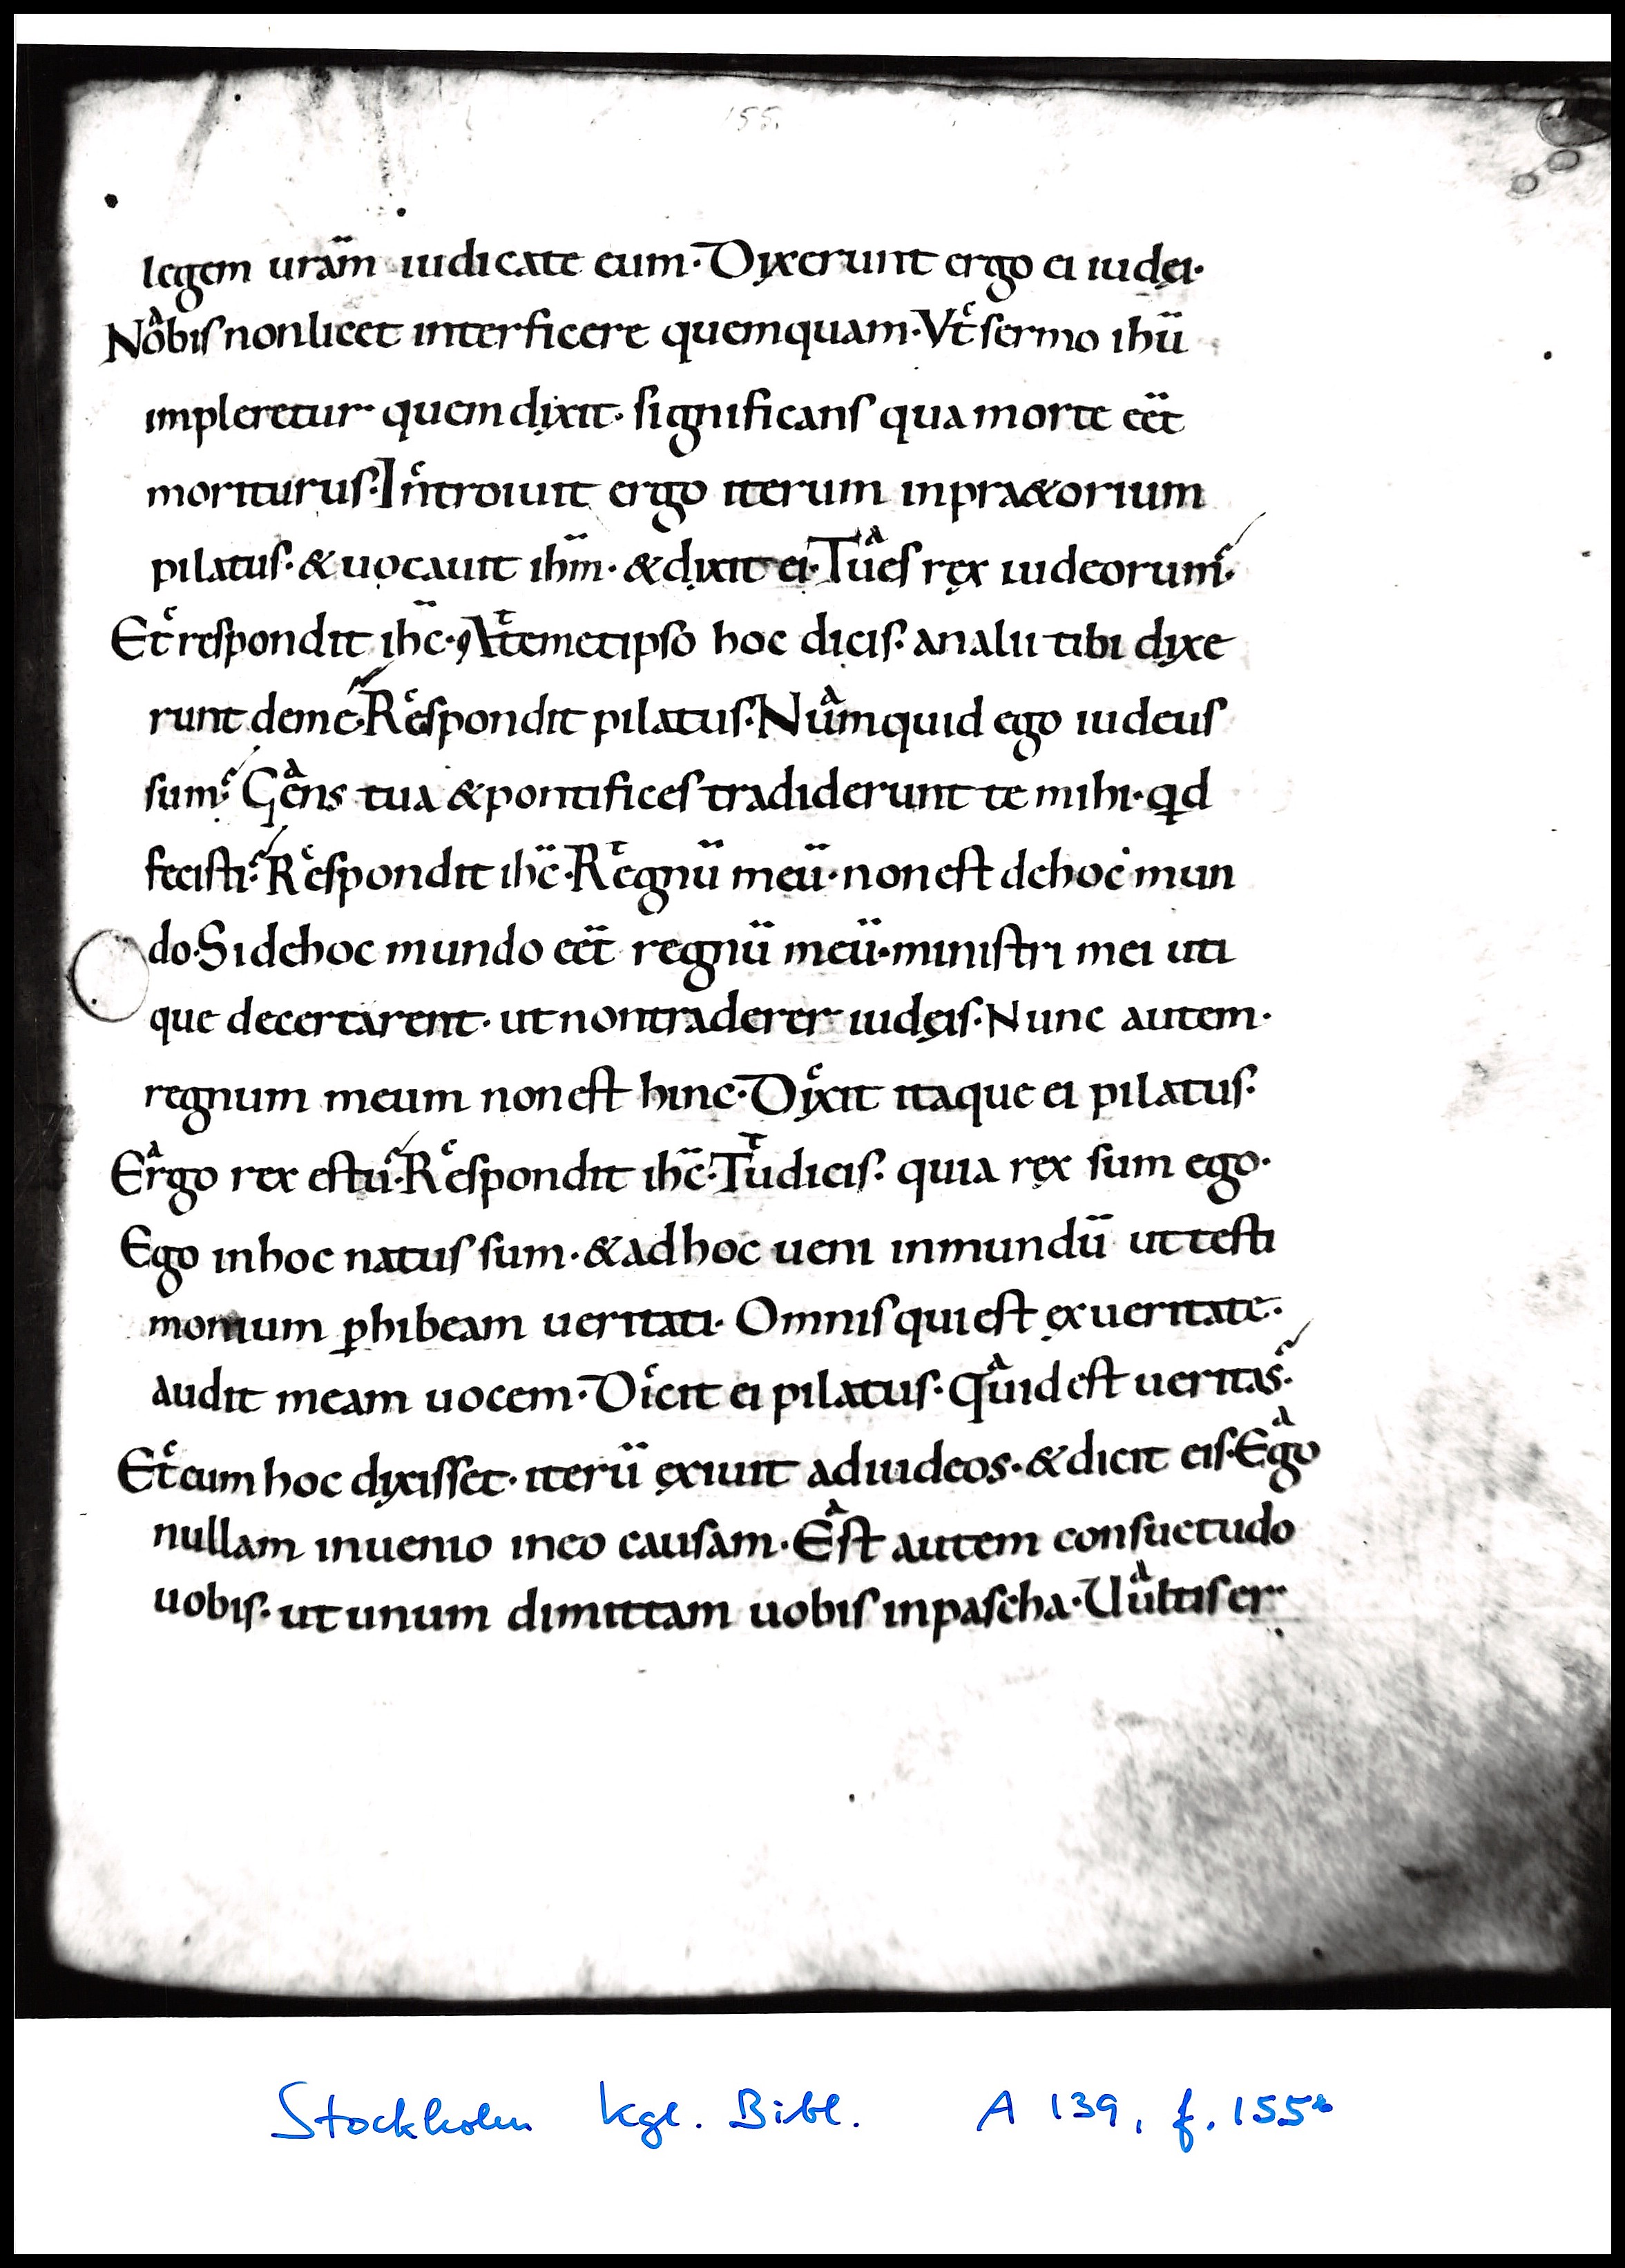 155.
legem uram̈ iudicate eum· Dixerunt ergo ei iudęi·
Nobis non licet interficere quemquam· Vt sermo ihü
impleretur quem dixit· significans qua morte eët
moriturus· Introiuit ergo iterum in praetorium
pilatus· & uocauit ihm̈· & dixit ei· Tu es rex iudeorum·
Et respondit ihc̈· A temetipso hoc dicis· an alii tibi dixe
runt de me· Respondit pilatus· Numquid ego iudeus
sum· Gens tua & pontifices tradiderunt te mihi· qd
fecisti· Respondit ihc̈· Regnü meü· non est de hoc mun
do· Si de hoc mundo eët regnü meü· ministri mei uti
que decertarent· ut non traderer iudęis· Nunc autem·
regnum meum non est hinc· Dixit itaque ei pilatus·
Ergo rex es tu· Respondit ihc̄· Tu dicis· quia rex sum ego·
Ego in hoc natus sum· & ad hoc ueni in mundü ut testi
monium ꝑhibeam ueritati· Omnis qui est ex ueritate·
audit meam uocem· Dicit ei pilatus· Quid est ueritas·
Et cum hoc dixisset· iterü exiuit ad iudeos· & dicit eis· Ego
nullam inuenio in eo causam· Est autem consuetudo
uobis· ut unum dimittam uobis in pascha· Uultis er
Stockholm Kgl. Bibl. A 139, f. 155